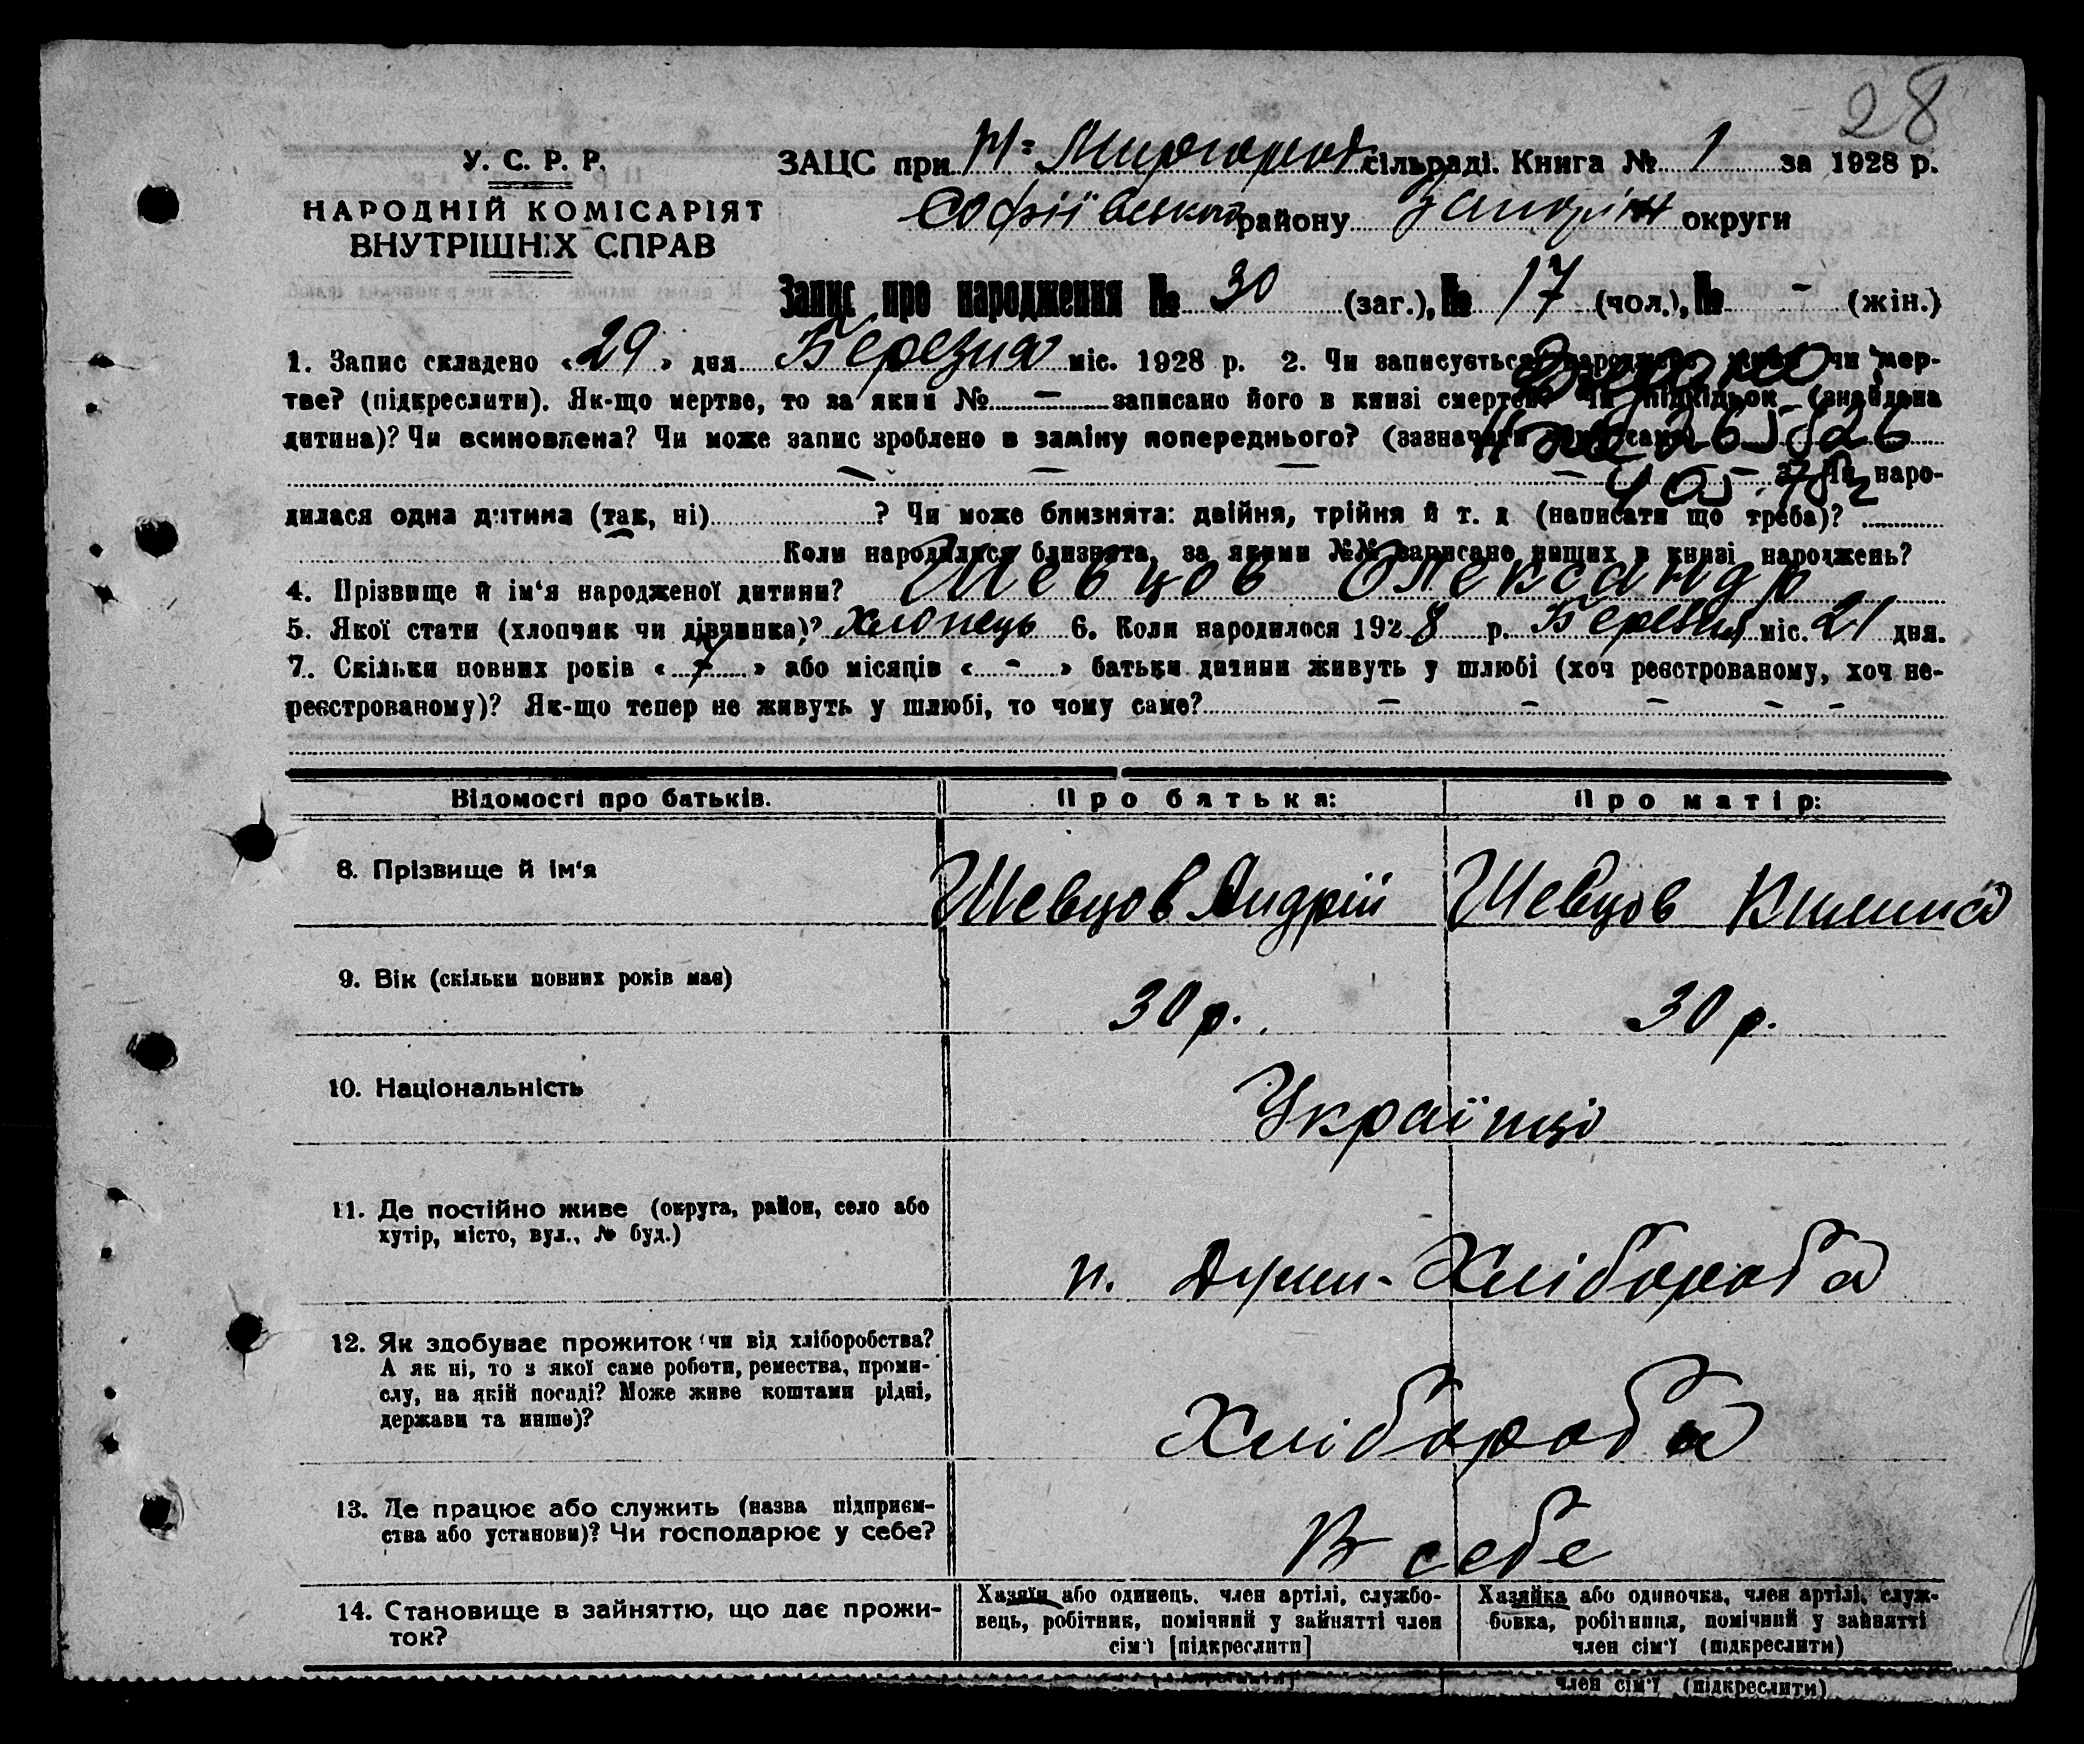 28
У. С. Р. Р.
НАРОДНІЙ КОМІСАРІЯТ
ВНУТРІШНІХ СПРАВ
ЗАЦС при сільраді. Книга № 1 за 1928 р.
Софіївського району округи
Запис про народження № 30 (заг.), № 17 (чол.), № - (жін.)
1. Запис складено «29» дня Березня міс. 1928 р. 2. Чи записується народжене живе чи мер-
тве? (підкреслити). Як-що мертве, то за яким № — записано його в книзі смертей? Чи підкідьок (знайдена
дитина)? Чи всиновлена? Чи може запис зроблено в заміну попереднього? (зазначити
— — — — — 3. Чи наро-
дилася одна дитина (так, ні) ? Чи може близнята: двійня, трійня й т. д (написати що треба)?
Коли народилися близнята, за якими №№ записано инших в книзі народжень?
4. Прізвище й ім‘я народженої дитини? Шевцов Олександр
5. Якої стати (хлопчик чи дівчинка)? Хлопець 6. Коли народилося 1928 р. Березня міс. 21 дня.
7. Скільки повних років « 7 » або місяців « - » батьки дитини живуть у шлюбі (хоч реєстрованому, хоч не-
реєстрованому)? Як-що тепер не живуть у шлюбі, то чому саме? — — — — —
Відомості про батьків. Про батька: Про матір:
8. Прізвище й ім‘я Шевцов Андрій Шевцов
9. Вік (скільки повних років має) 30 р. 30 р.
10. Національність Українці
11. Де постійно живе (округа, район, село або
хутір, місто, вул., № буд.)
п. Хлібороба
12. Як здобуває прожиток (чи від хліборобства?
А як ні, то з якої саме роботи, ремества, проми-
слу, на якій посаді? Може живе коштами рідні,
держави та инше)?
Хлібороба
13. Де працює або служить (назва підприєм-
ства або установи)? Чи господарює у себе?
В себе
14. Становище в зайняттю, що дає прожи-
ток?
Хазяїн або одинець, член артілі, службо-
вець, робітник, помічний у зайнятті член
сім‘ї [підкреслити]
Хазяйка або одиночка, член артілі, служ-
бовка, робітниця, помічний у зайнятті
член сім‘ї (підкреслити)
член сім‘ї (підкреслити)